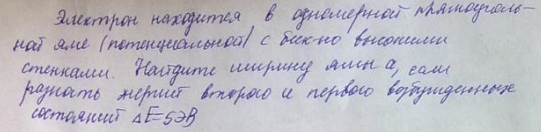 Электрон находится в одномерной прямоуголь-
ной яме (потенциальной) с беск-но высокими
стенками. Найдите ширину ямы a, если
разность энергий второго и первого возбужденных
состояний ΔE=5эВ